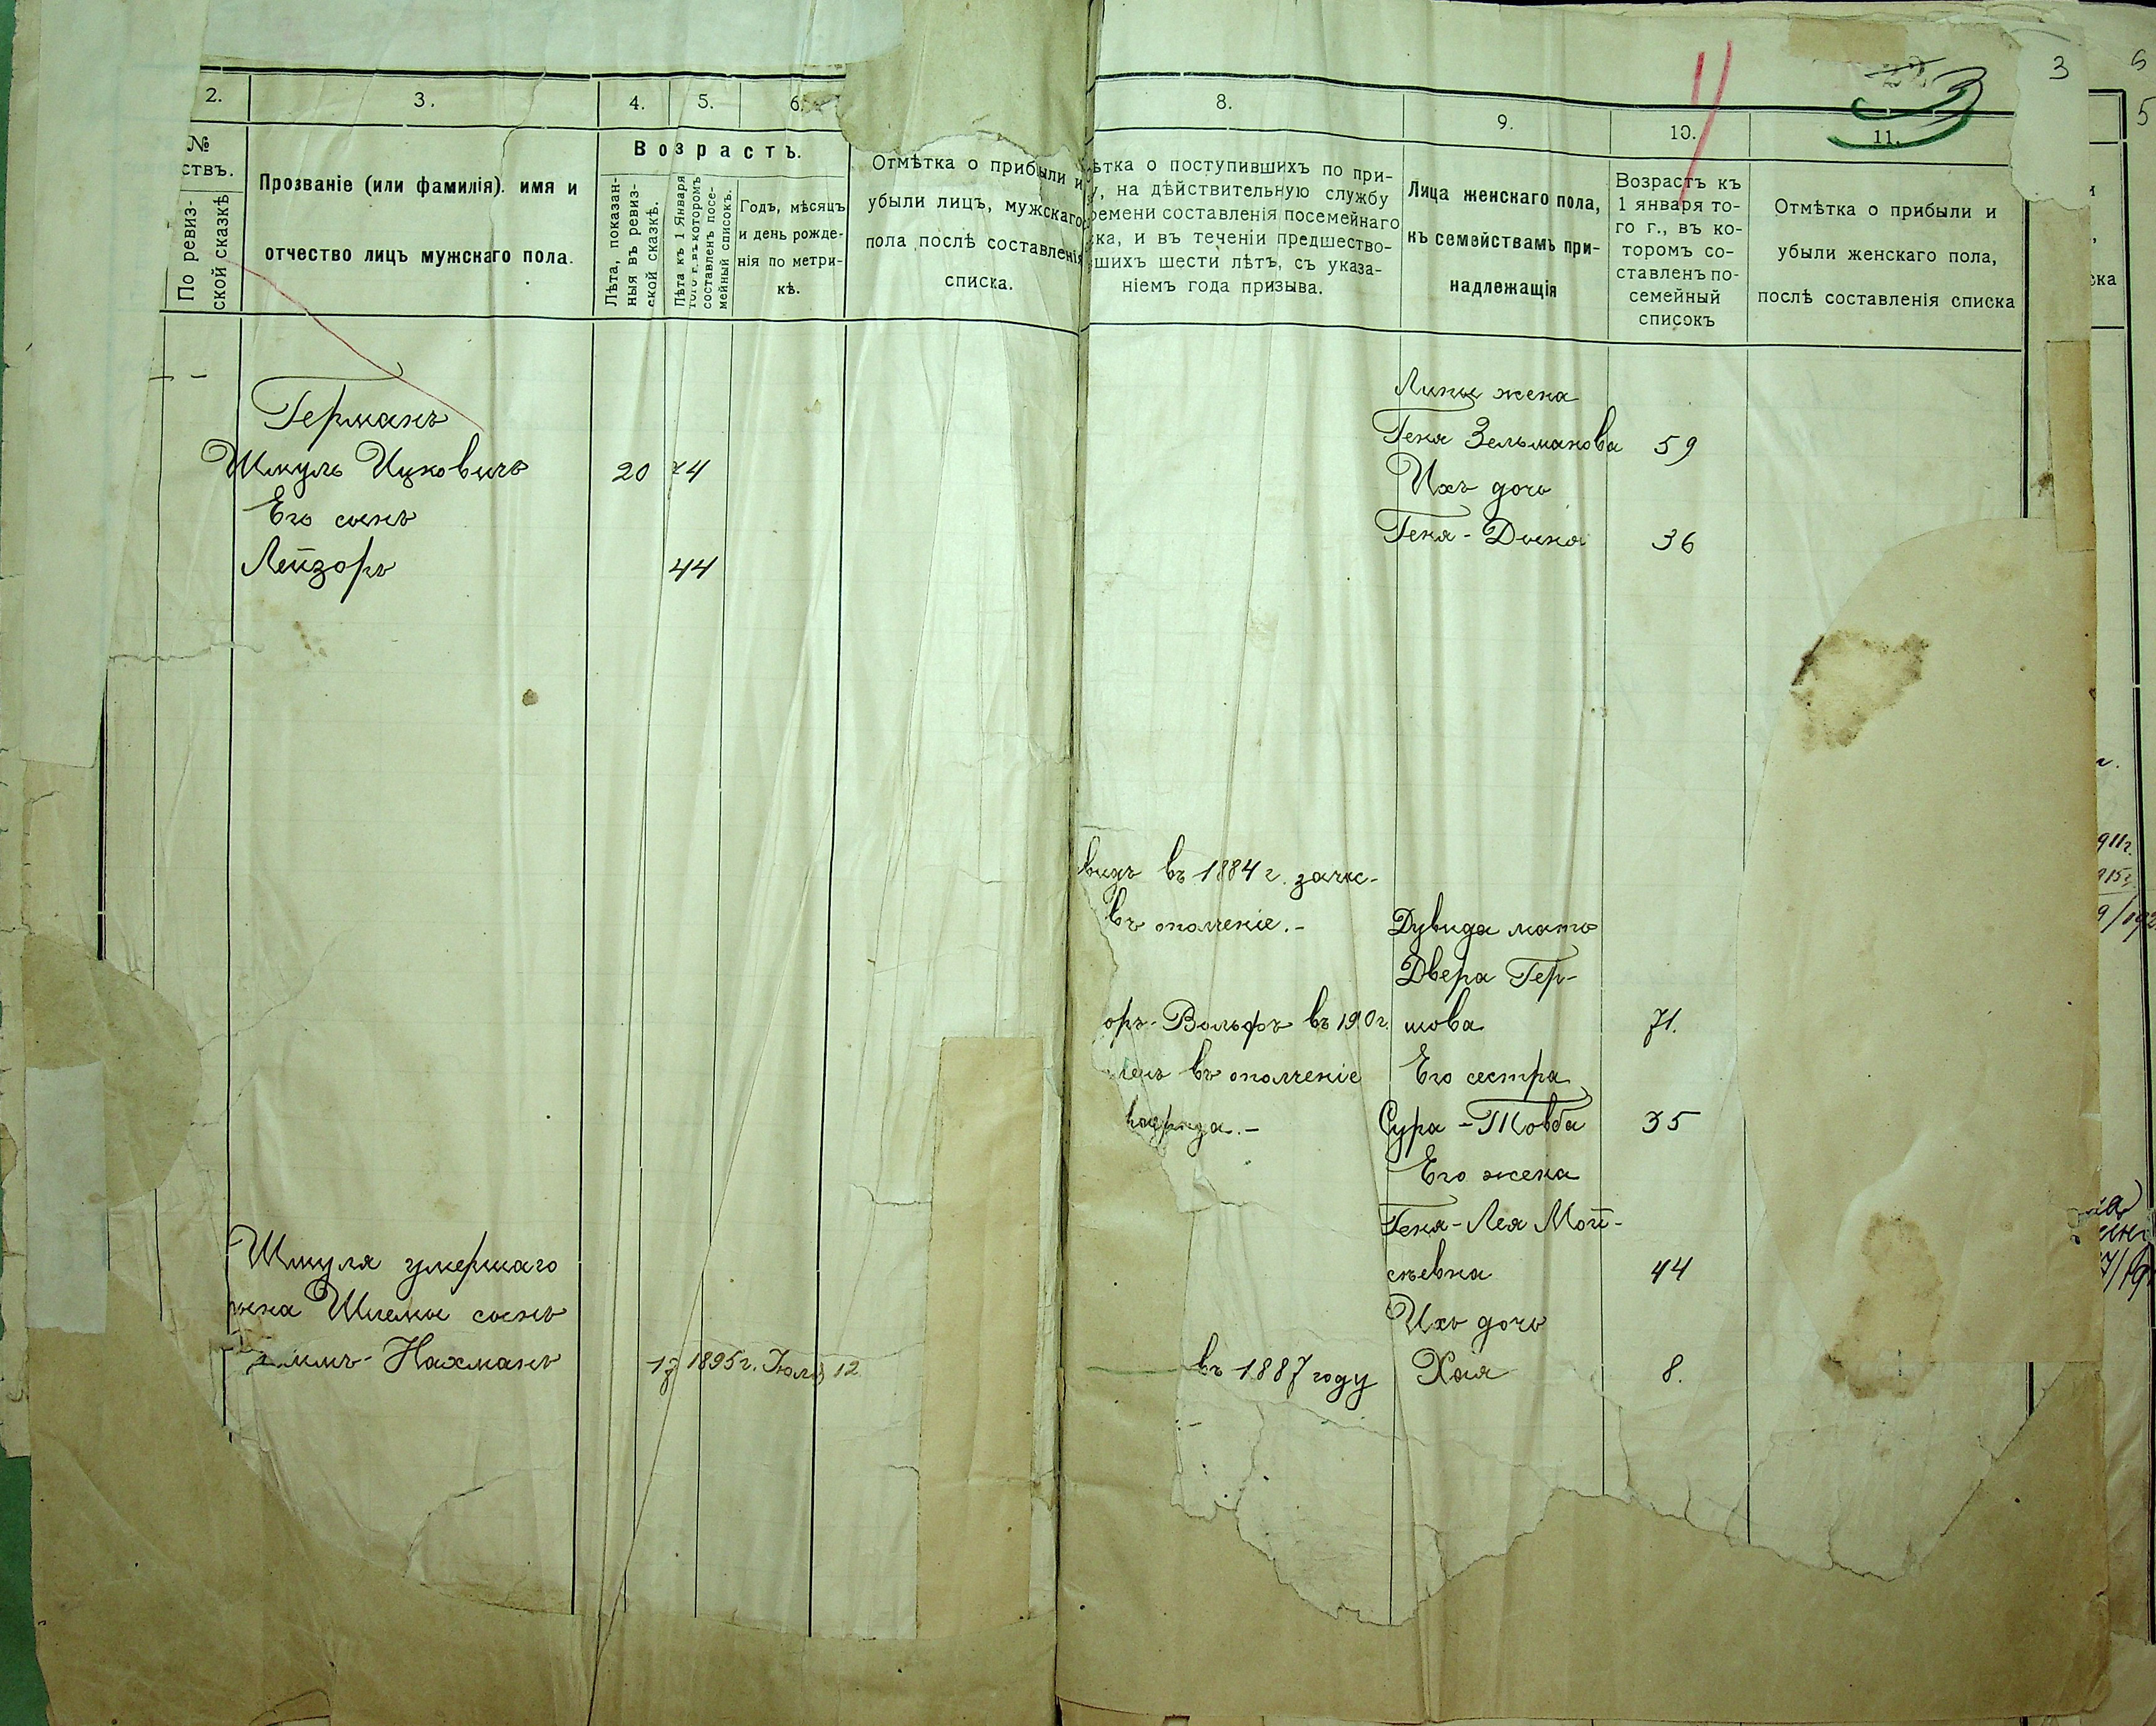 2.
3.
4.
5.
6.
№
ствъ.
По ревиз-
ской сказкѣ
Прозваніе (или фамилія). имя и
отчество лицъ мужскаго пола.
Возрастъ.
Лѣта, показан-
ныя въ ревиз-
ской сказкѣ.
Лѣта къ 1 Января
того г. въ которомъ
составленъ посе-
мейный списокъ.
Годъ, мѣсяцъ
и день рожде-
нія по метри-
кѣ.
Отмѣтка о прибыли и
убыли лицъ, мужскаго
пола послѣ составленія
списка.
—
Германъ
Шмуль Ицковичъ 20 74
Его сынъ
Лейзоръ 44
Шмуля умершаго
Шлемы сынъ
Нахманъ 17 1895 г. Іюля 12
8.
9.
10.
11.
3
ѣтка о поступившихъ по при-
у, на дѣйствительную службу
ремени составленія посемейнаго
ска, и въ теченіи предшество-
шихъ шести лѣтъ, съ указа-
ніемъ года призыва.
Лица женскаго пола,
къ семействамъ при-
надлежащія
Возрастъ къ
1 января то-
го г., въ ко-
торомъ со-
ставленъ по-
семейный
списокъ
Отмѣтка о прибыли и
убыли женскаго пола,
послѣ составленія списка
жена
Геня Зельманова 59
Ихъ дочь
Геня- 36
видъ въ 1884 г. зачис-
въ ополченіе.- Дувида мать
Двера Гер-
оръ-Вольфъ въ 1910 г. шова 71.
ленъ въ ополченіе Его сестра
разряда.- Сура-Товба 35
Его жена
Геня-Лея Мой-
сѣевна 44
Ихъ дочь
въ 1887 году Хая 8.
3
6
5
ска
911 г.
915 г.